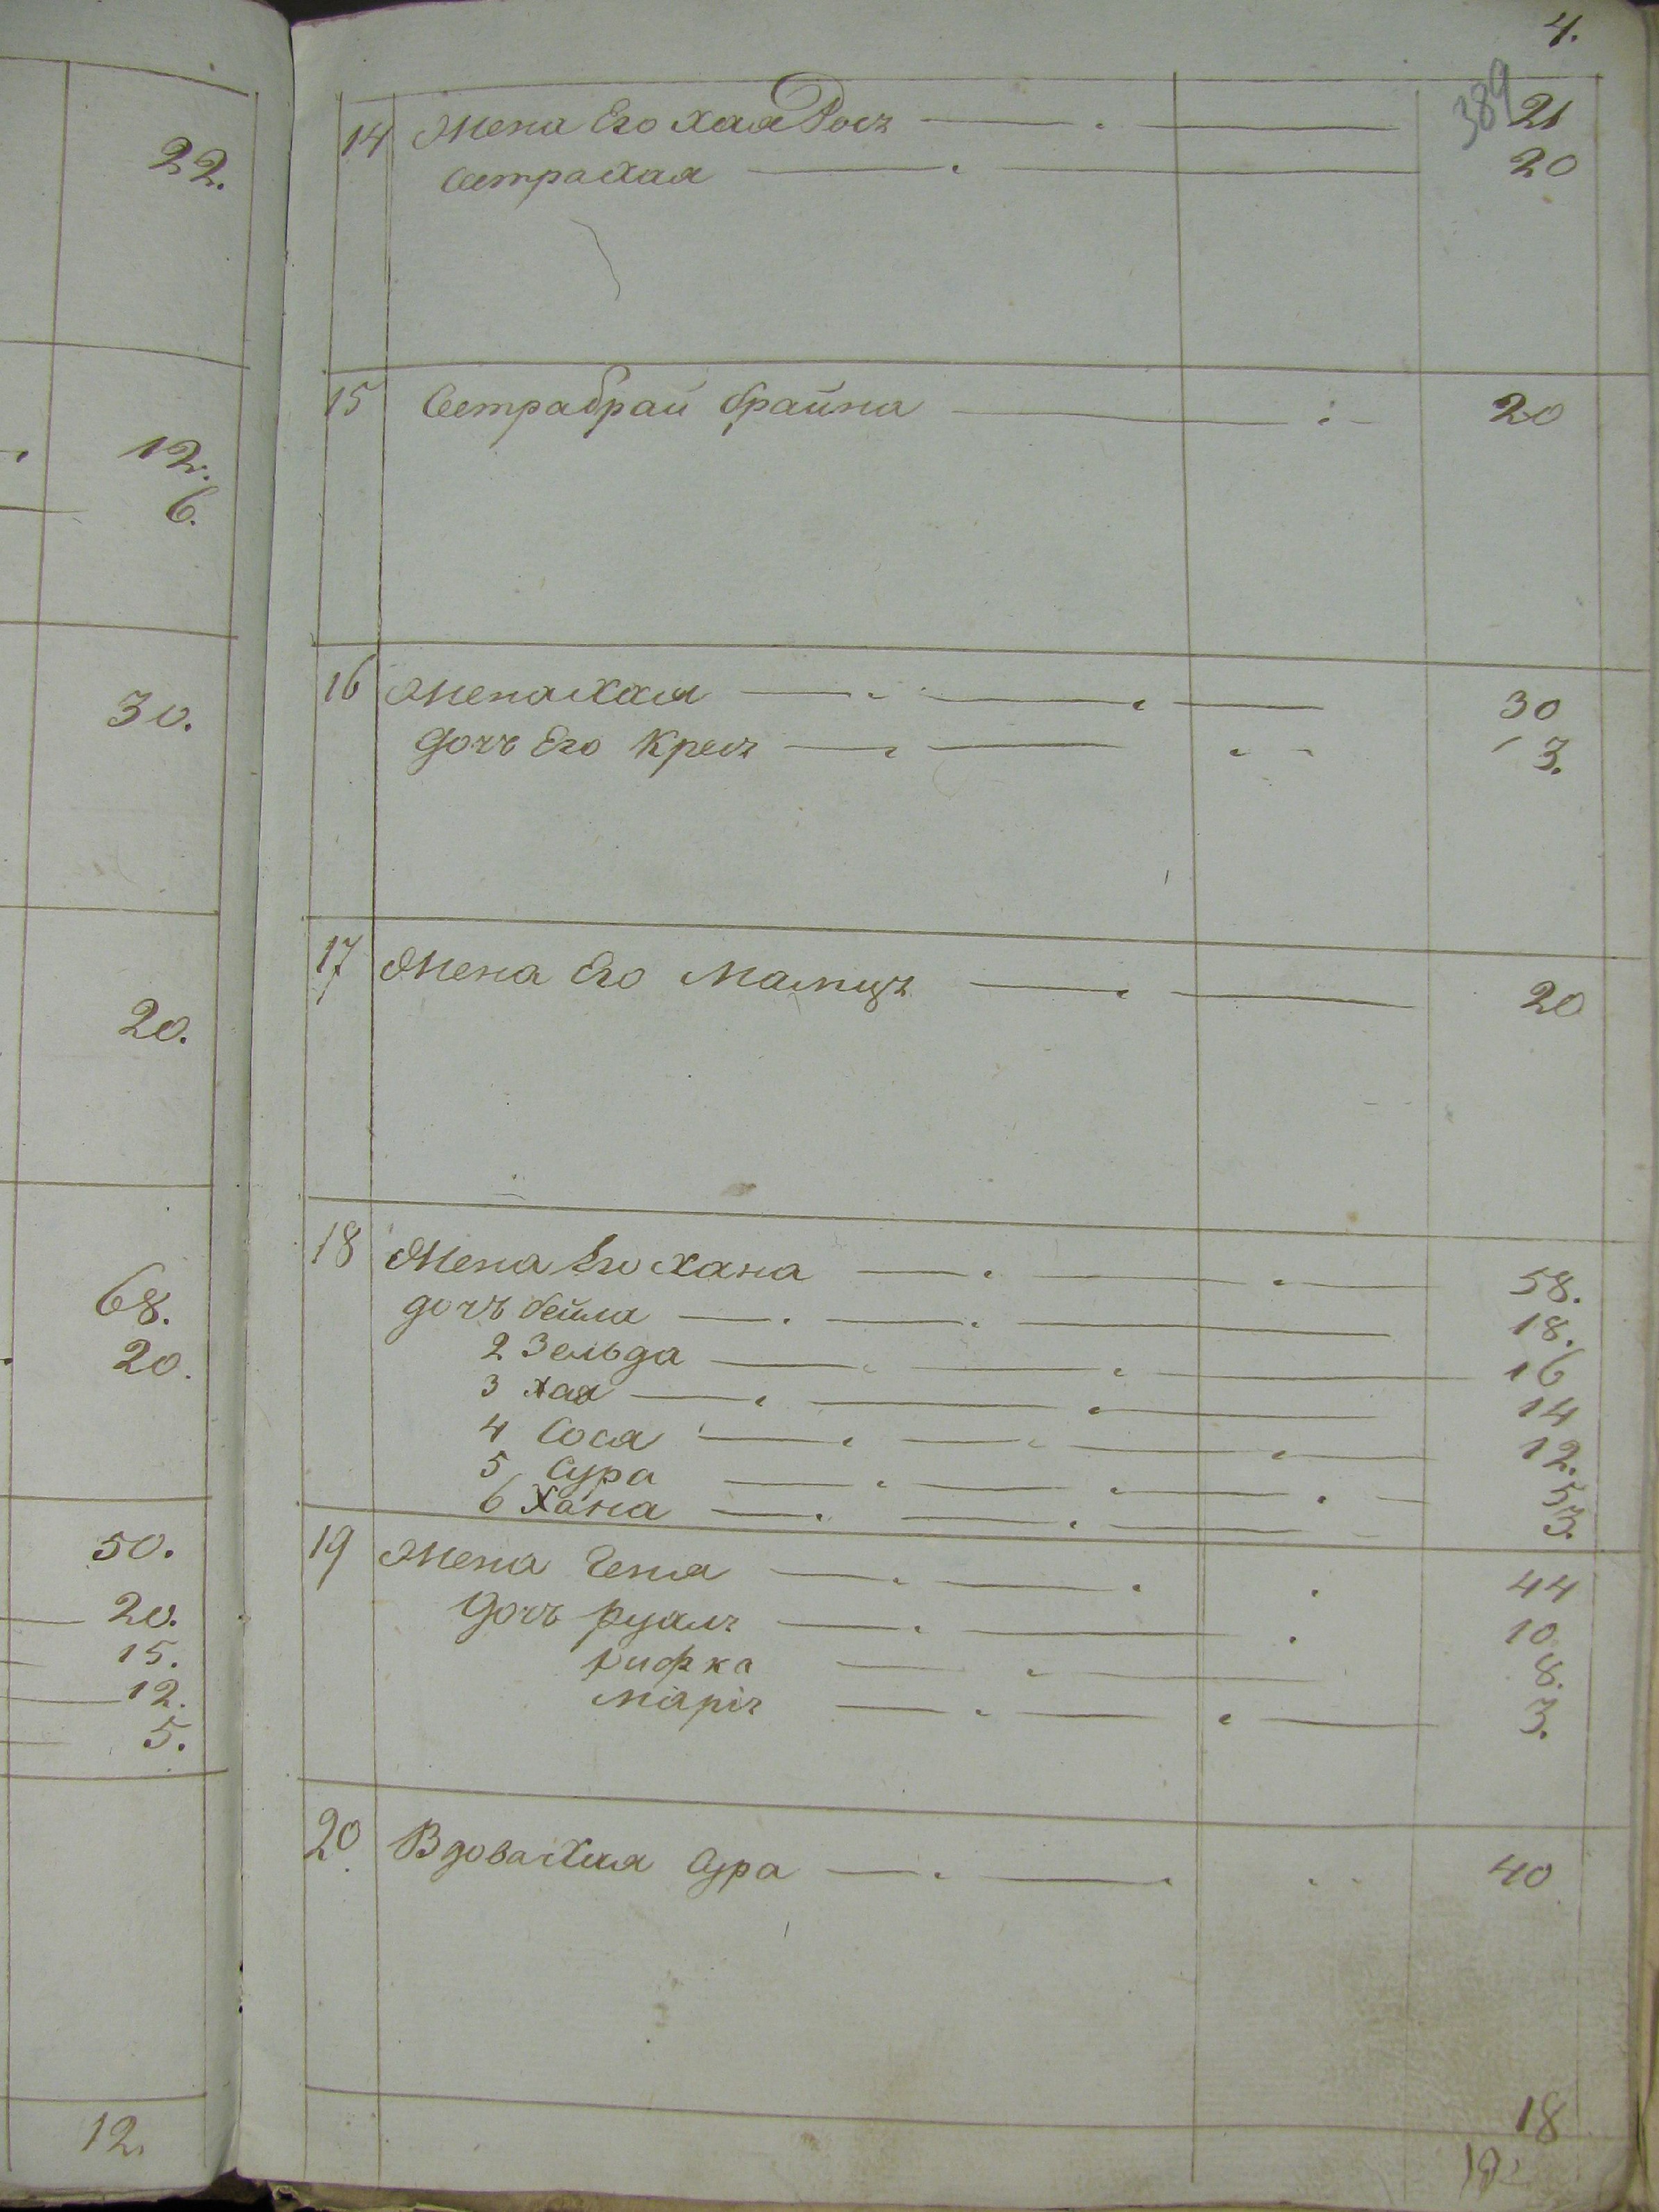 22.
12.
6.
30.
20.
68.
20.
50.
20.
15.
12.
5.
12.
4.
389
14 Жена Его Хая Рось 21
Сестра Хая 20
15 Сестра Брай брайна 20
16 Жена Хая 30
Дочь Его Кресъ 3.
17 Жена Его 20
18 Жена Его Хана 58.
дочь бейла 18.
2 Зельда 16
3 Хая 14
4 Сося 12.
5 Сура 5
6 Хана 3.
19 Жена Геня 44
Дочь 10
рифка 8.
3.
20 Вдова Хая Сура 40
18